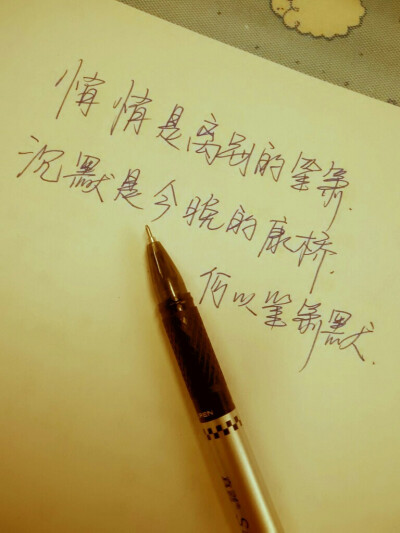 悄悄是离别的笙箫.
沉默是今晚的康桥.
何以笙箫默.
PEN